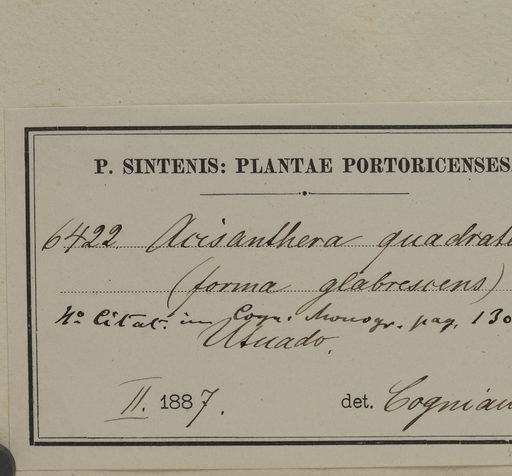 P. SINTENIS: PLANTAE PORTORICENSES.
6422. Acisanthera quadrat
(forma glabrescens)
No. Citat. in Cogn. Monogr. pag. 130
Utuado.
II. 1887. det. Cogniau